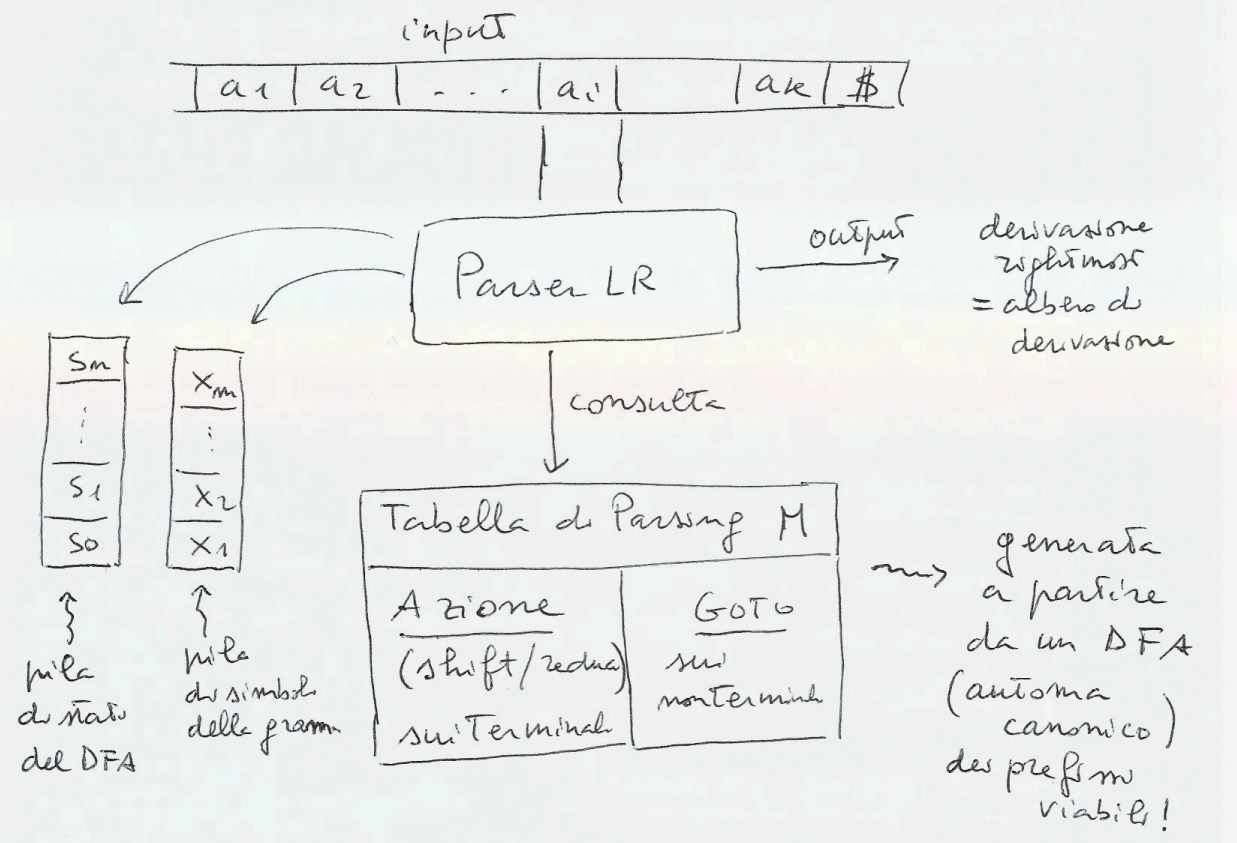 input
a1 a2 . . . ai ak $
Parser LR
output
derivazione
rightmost
= albero di
derivazione
consulta
sn
⋮
s1
s0
Xm
⋮
X2
X1
pila
di stati
del DFA
pila
di simboli
della gramm
Tabella di Parsing M
Azione
(shift/reduce)
sui terminali
GOTO
sui
nonterminali
generata
a partire
da un DFA
(automa
canonico)
dei prefissi
viabili!